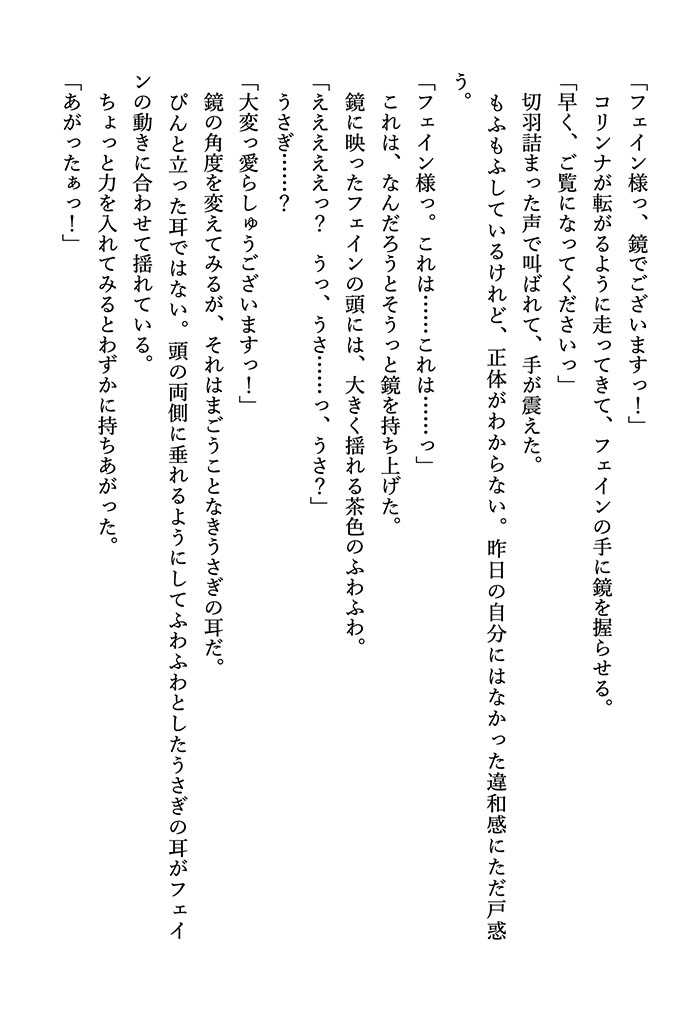 「フェイン様っ、鏡でございますっ！」
　コリンナが転がるように走ってきて、フェインの手に鏡を握らせる。
「早く、ご覧になってくださいっ」
　切羽詰まった声で叫ばれて、手が震えた。
　もふもふしているけれど、正体がわからない。昨日の自分にはなかった違和感にただ戸惑
う。
「フェイン様っ。これは……これは……っ」
　これは、なんだろうとそうっと鏡を持ち上げた。
　鏡に映ったフェインの頭には、大きく揺れる茶色のふわふわ。
「えええええっ？　うっ、うさ……っ、うさ？」
　うさぎ……？
「大変っ愛らしゅうございますっ！」
　鏡の角度を変えてみるが、それはまごうことなきうさぎの耳だ。
　ぴんと立った耳ではない。頭の両側に垂れるようにしてふわふわとしたうさぎの耳がフェイ
ンの動きに合わせて揺れている。
　ちょっと力を入れてみるとわずかに持ちあがった。
「あがったぁっ！」